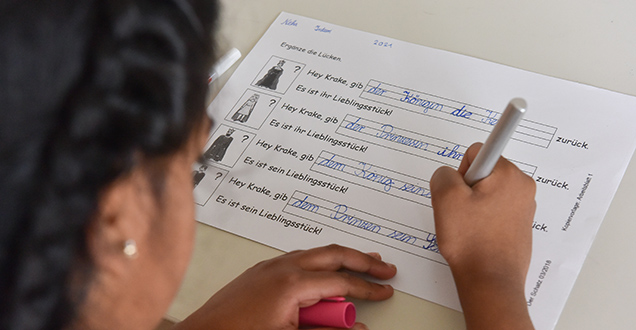 2021
Ergänze die Lücken.
? Hey Krake, gib der Königin die zurück.
Es ist ihr Lieblingsstück!
? Hey Krake, gib der Prinzessin ihr zurück.
Es ist ihr Lieblingsstück!
? Hey Krake, gib dem König sein zurück.
Es ist sein Lieblingsstück!
? Hey Krake, gib dem Prinzen sein
Es ist sein Lieblingsstück!
Kopiervorlage: Arbeitsblatt 1
Der Schatz 03/2018